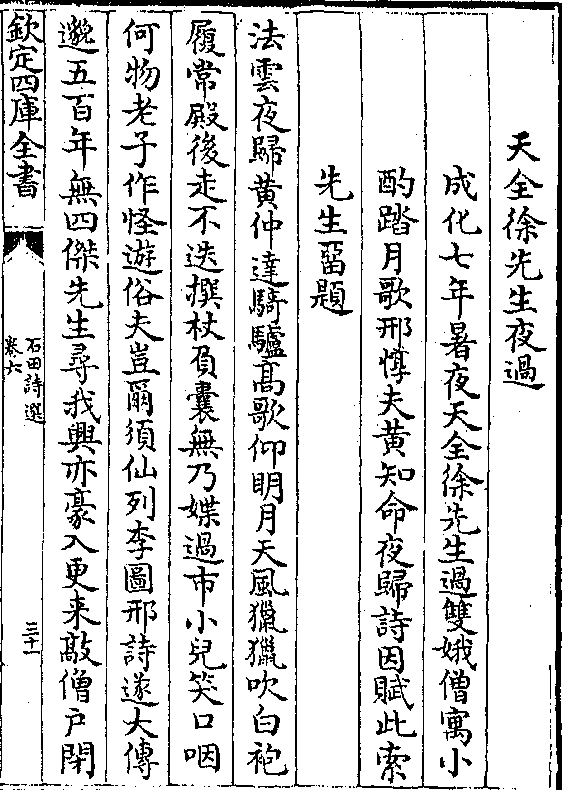 天全徐先生夜過
成化七年暑夜天全徐先生過雙娥僧寓小
酌踏月歌邢惇夫黄知命夜歸詩因賦此索
先生畱題
法雲夜歸黄仲達騎驢髙歌仰明月天風獵獵吹白袍
履常殿後走不迭撰杖負囊無乃媟過市小兒笑口咽
何物老子作怪遊俗夫豈爾須仙列李圖邢詩遂大傳
邈五百年無四傑先生尋我興亦豪入更来敲僧户閉
欽定四庫全書
石田詩選
卷六
三十一